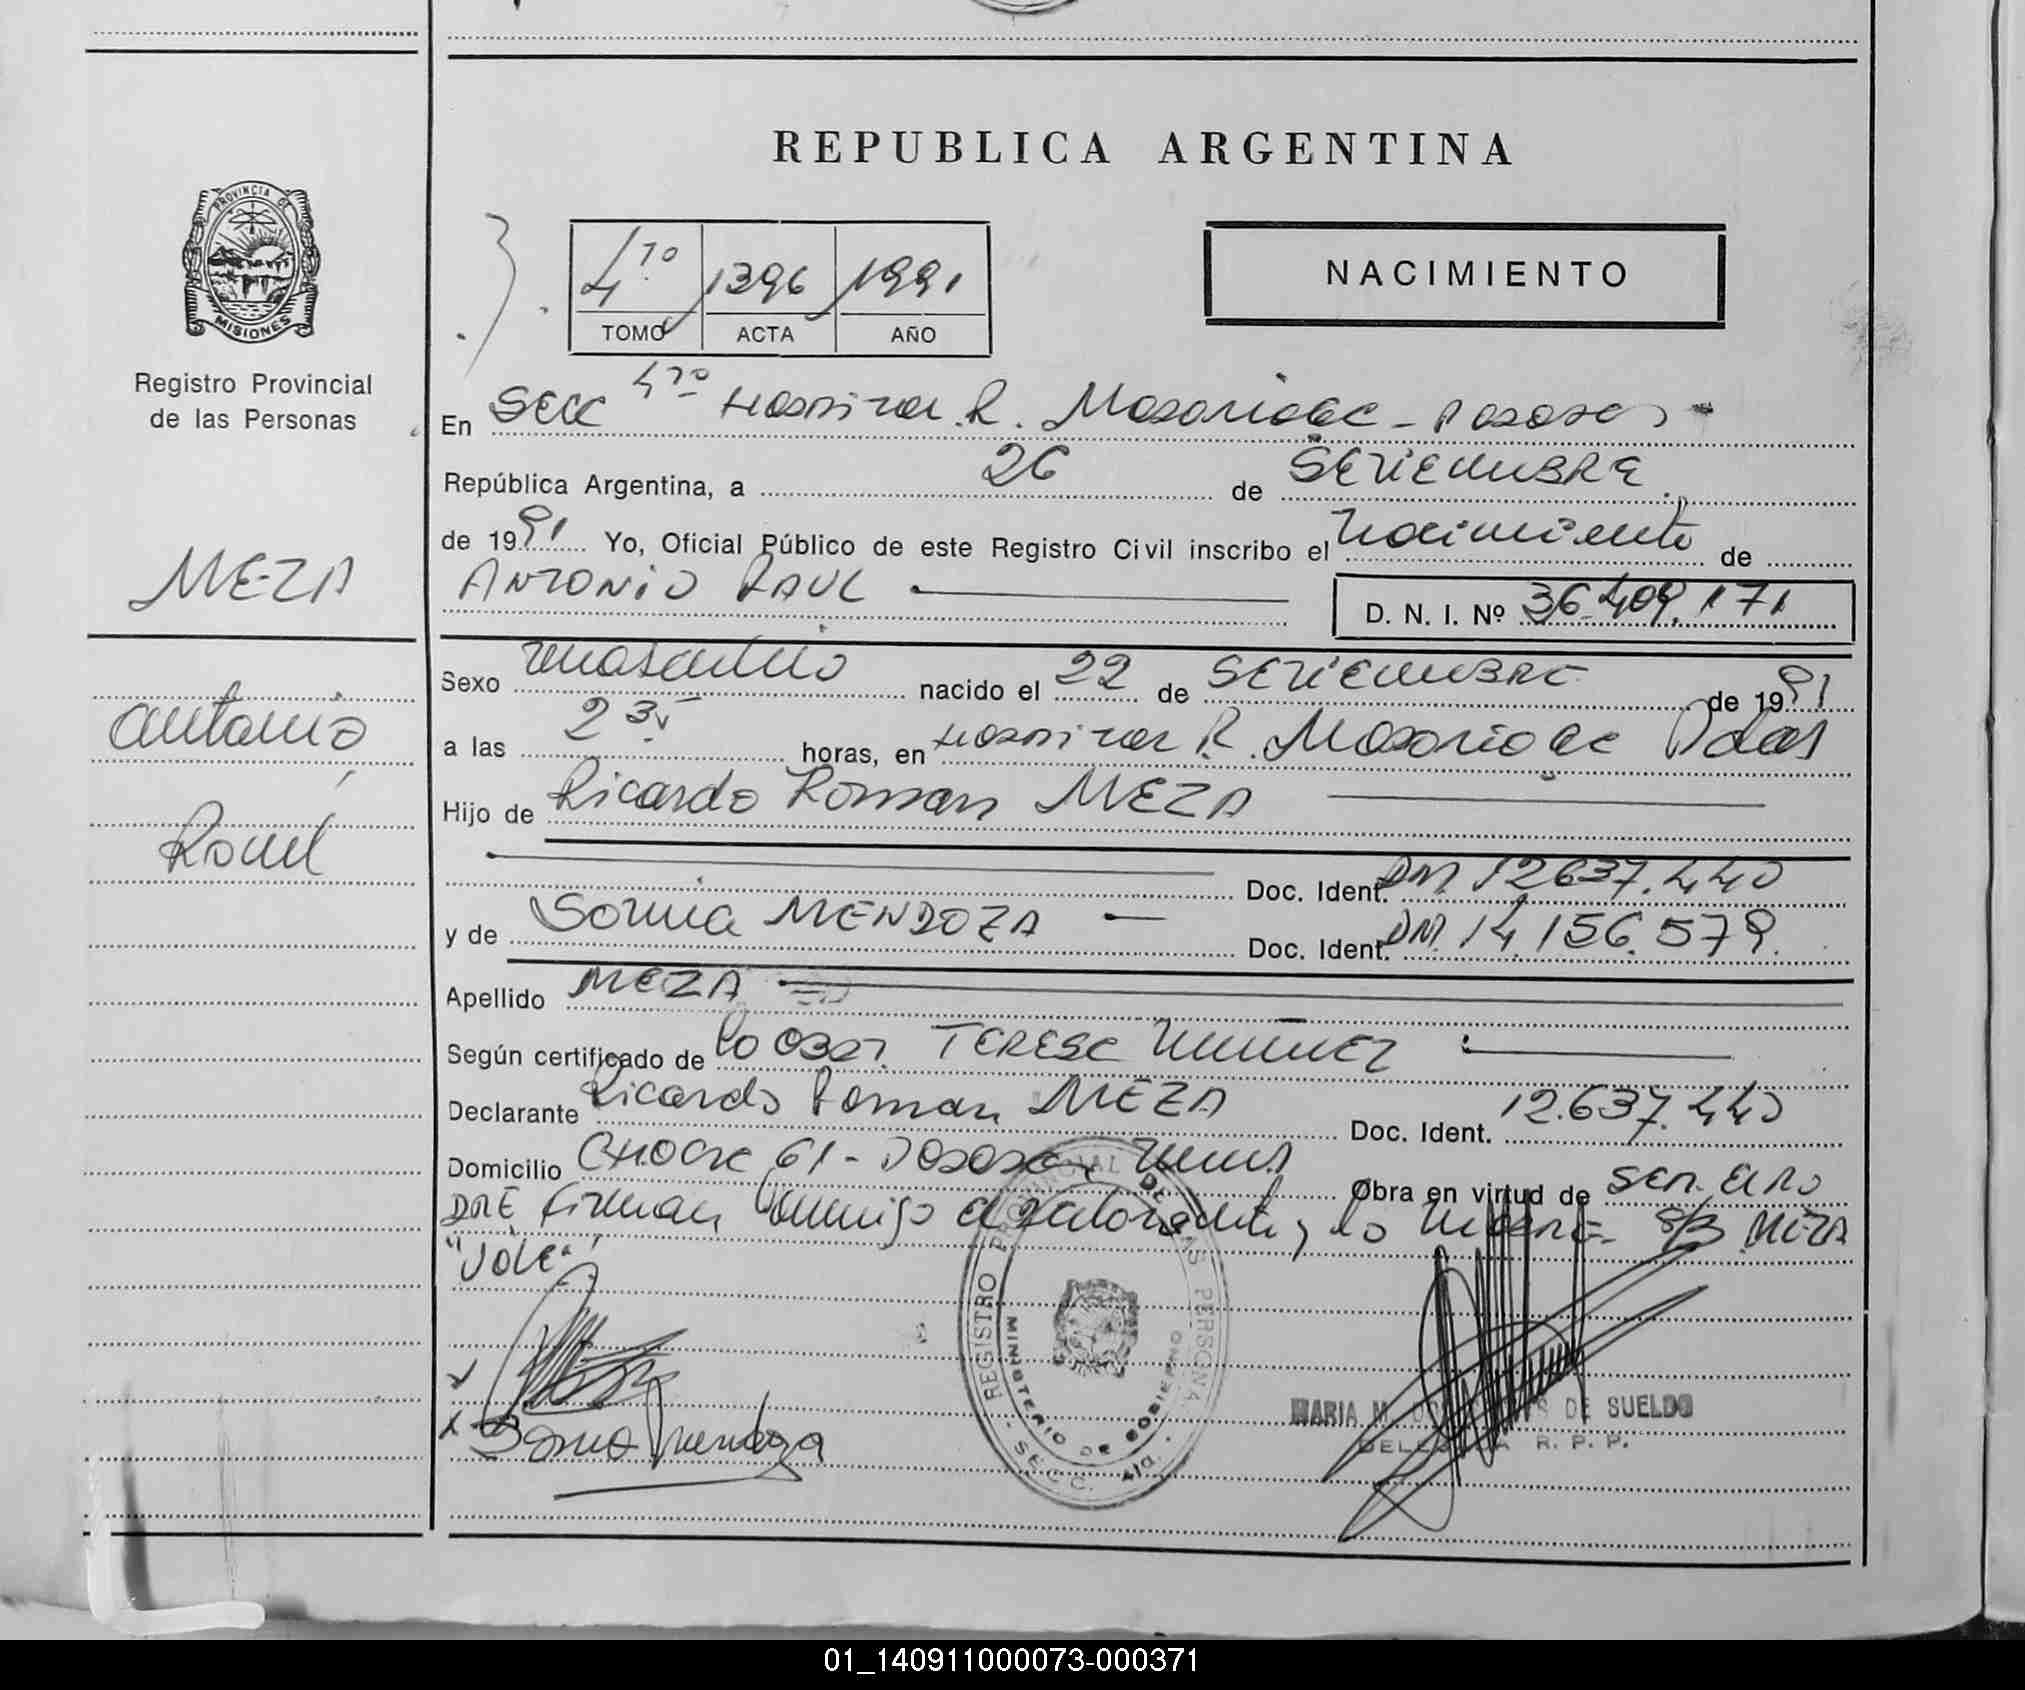 REPUBLICA ARGENTINA
PROVINCIA DE
MISIONES
Registro Provincial
de las Personas
4to 1396 1991
TOMO ACTA AÑO
NACIMIENTO
En Secc 4to Hospital R. Madariaga - Posadas
República Argentina, a 26 de SETIEMBRE
de 1991 Yo, Oficial Público de este Registro Civil inscribo el Nacimiento de
MEZA
ANTONIO RAUL
D. N. I. Nº 36.409.171
Sexo masculino nacido el 22 de SETIEMBRE de 1991
Antonio
a las 235 horas, en Hospital R. Madariaga Pdas
Raul
Hijo de Ricardo Roman MEZA
Doc. Ident. DNI. 12.637.440
y de Sonia MENDOZA Doc. Ident. DNI. 14.156.579.
Apellido MEZA
Según certificado de la Obst. TERESA NUÑEZ
Declarante Ricardo Roman MEZA Doc. Ident. 12.637.440
Domicilio CHACRA 61 - Posadas Mnes Obra en virtud de ser. el Pro
DRE firman conmigo el declarante y la Madre - S/B MEZA
"VALE"
Sonia Mendoza
REGISTRO PROVINCIAL DE LAS PERSONAS - SECC. 4ta. -
MINISTERIO DE GOBIERNO
MARIA M. DE SUELDO
DELEGADA R. P. P.
01_140911000073-000371